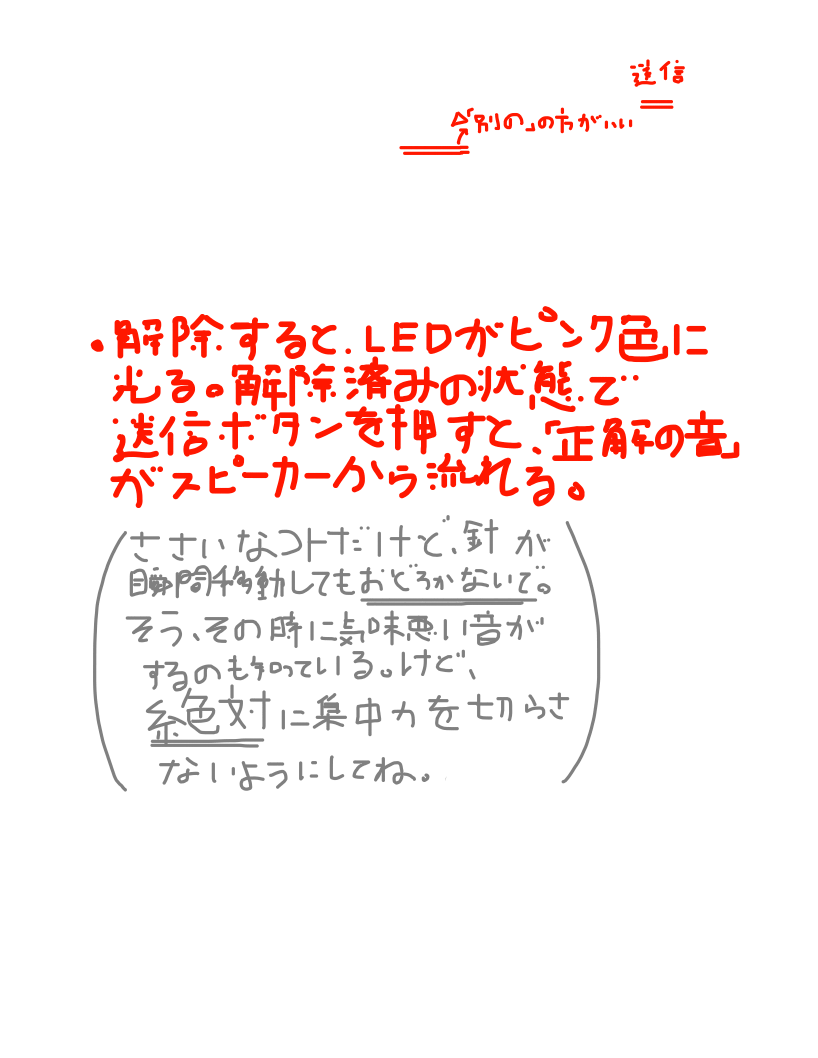 送信
「別の」の方がいい
・解除すると、LEDがピンク色に
光る。解除済みの状態で
送信ボタンを押すと、「正解の音」
がスピーカーから流れる。
(ささいなコトだけど、針が
瞬間移動してもおどろかないで。
そう、その時に気味悪い音が
するのも知っている。けど、
絶対に集中力を切らさ
ないようにしてね。)